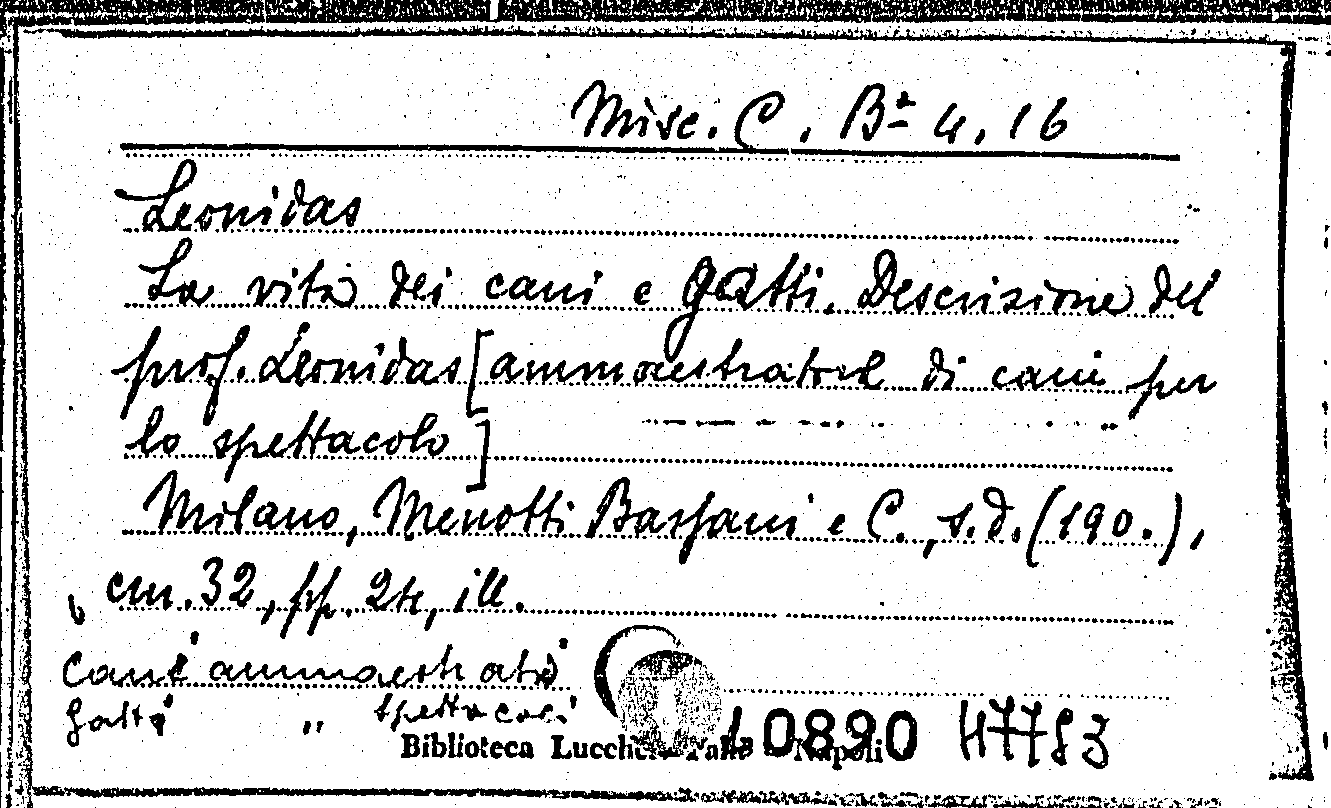 Misc. C. Bª 4, 16
Leonidas
La vita dei cani e gatti. Descrizione del
prof. Leonidas [ammaestratore di cani per
lo spettacolo]
Milano, Menotti Bassani e C., s.d. (190.),
cm. 32, pp. 24, ill.
Cani ammaestrati
Gatti " spettacoli
Biblioteca Lucchesi Palli - Napoli
10890 47783